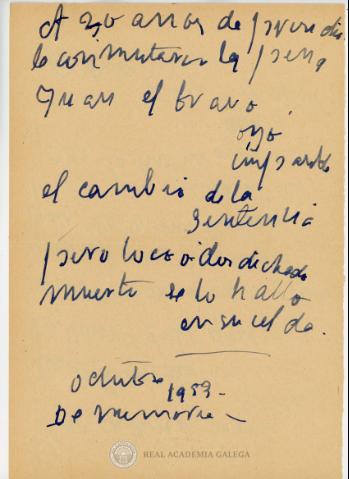 A 30 años de presidio
le conmutaron la pena
Juan el bravo
oyó
impasible
el cambio de la
sentencia
pero loco o desdichado
muerto se lo hallo
en su celda.
Octubre 1953-
De memoria-
REAL ACADEMIA GALEGA